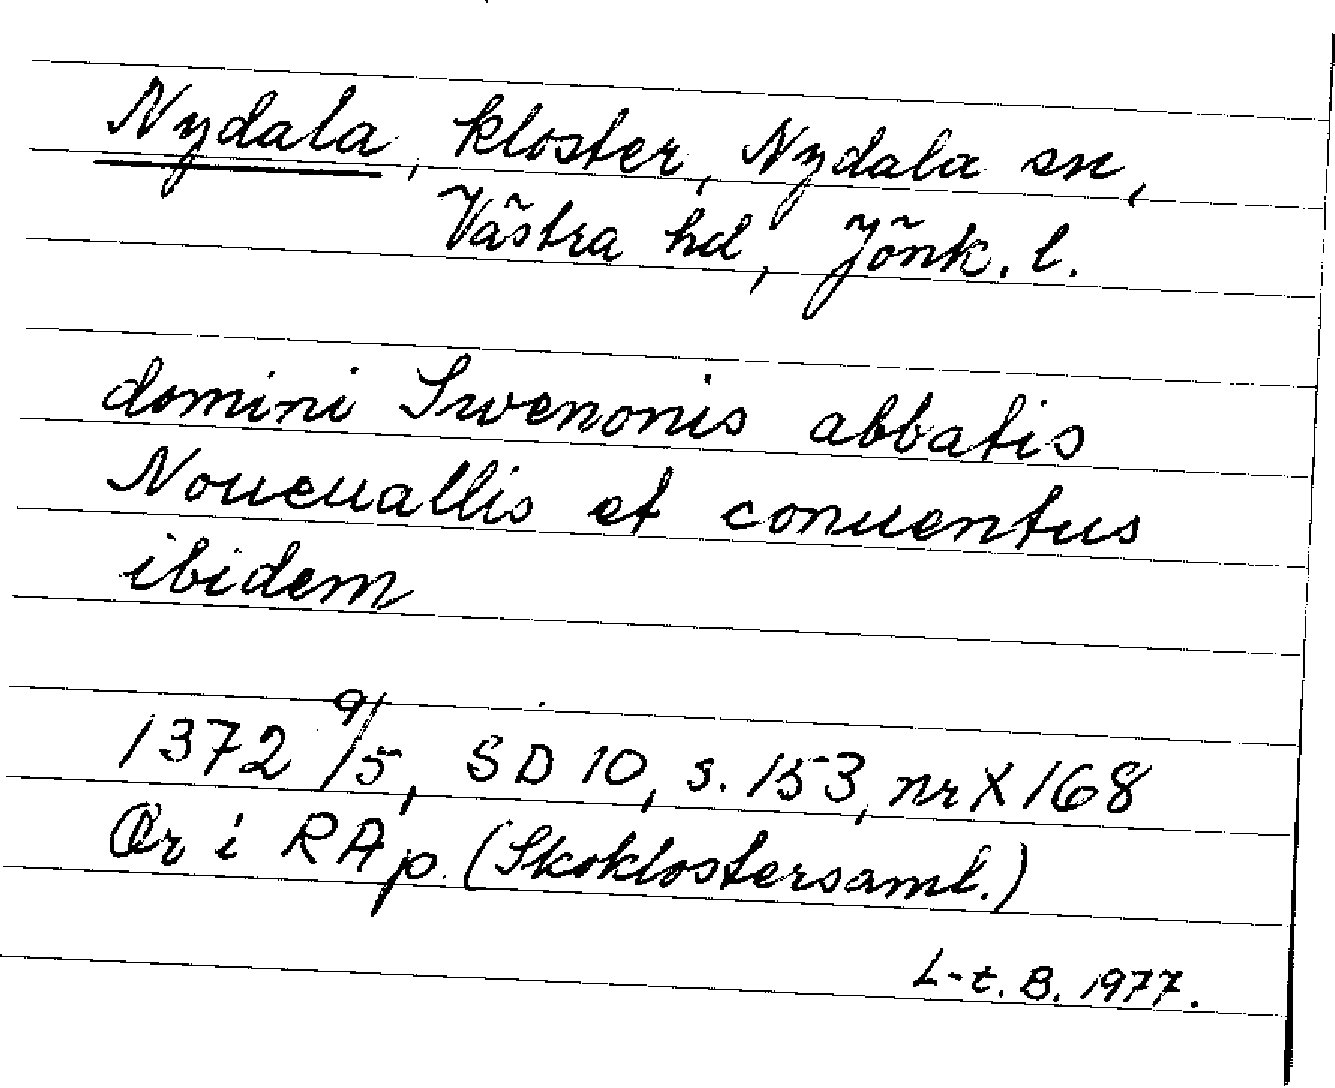 Nydala, kloster, Nydala sn,
Västra hd, Jönk. l.
domini Swenonis abbatis
Noueuallis et conuentus
ibidem
1372 9/5, SD 10, s. 153, nr X 168
Or i RAp. (Skoklostersaml.)
L-t. B. 1977.